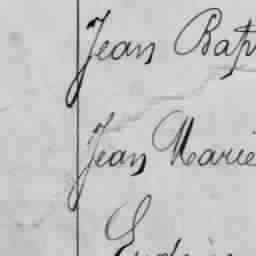 Jean Bap
Jean Marie